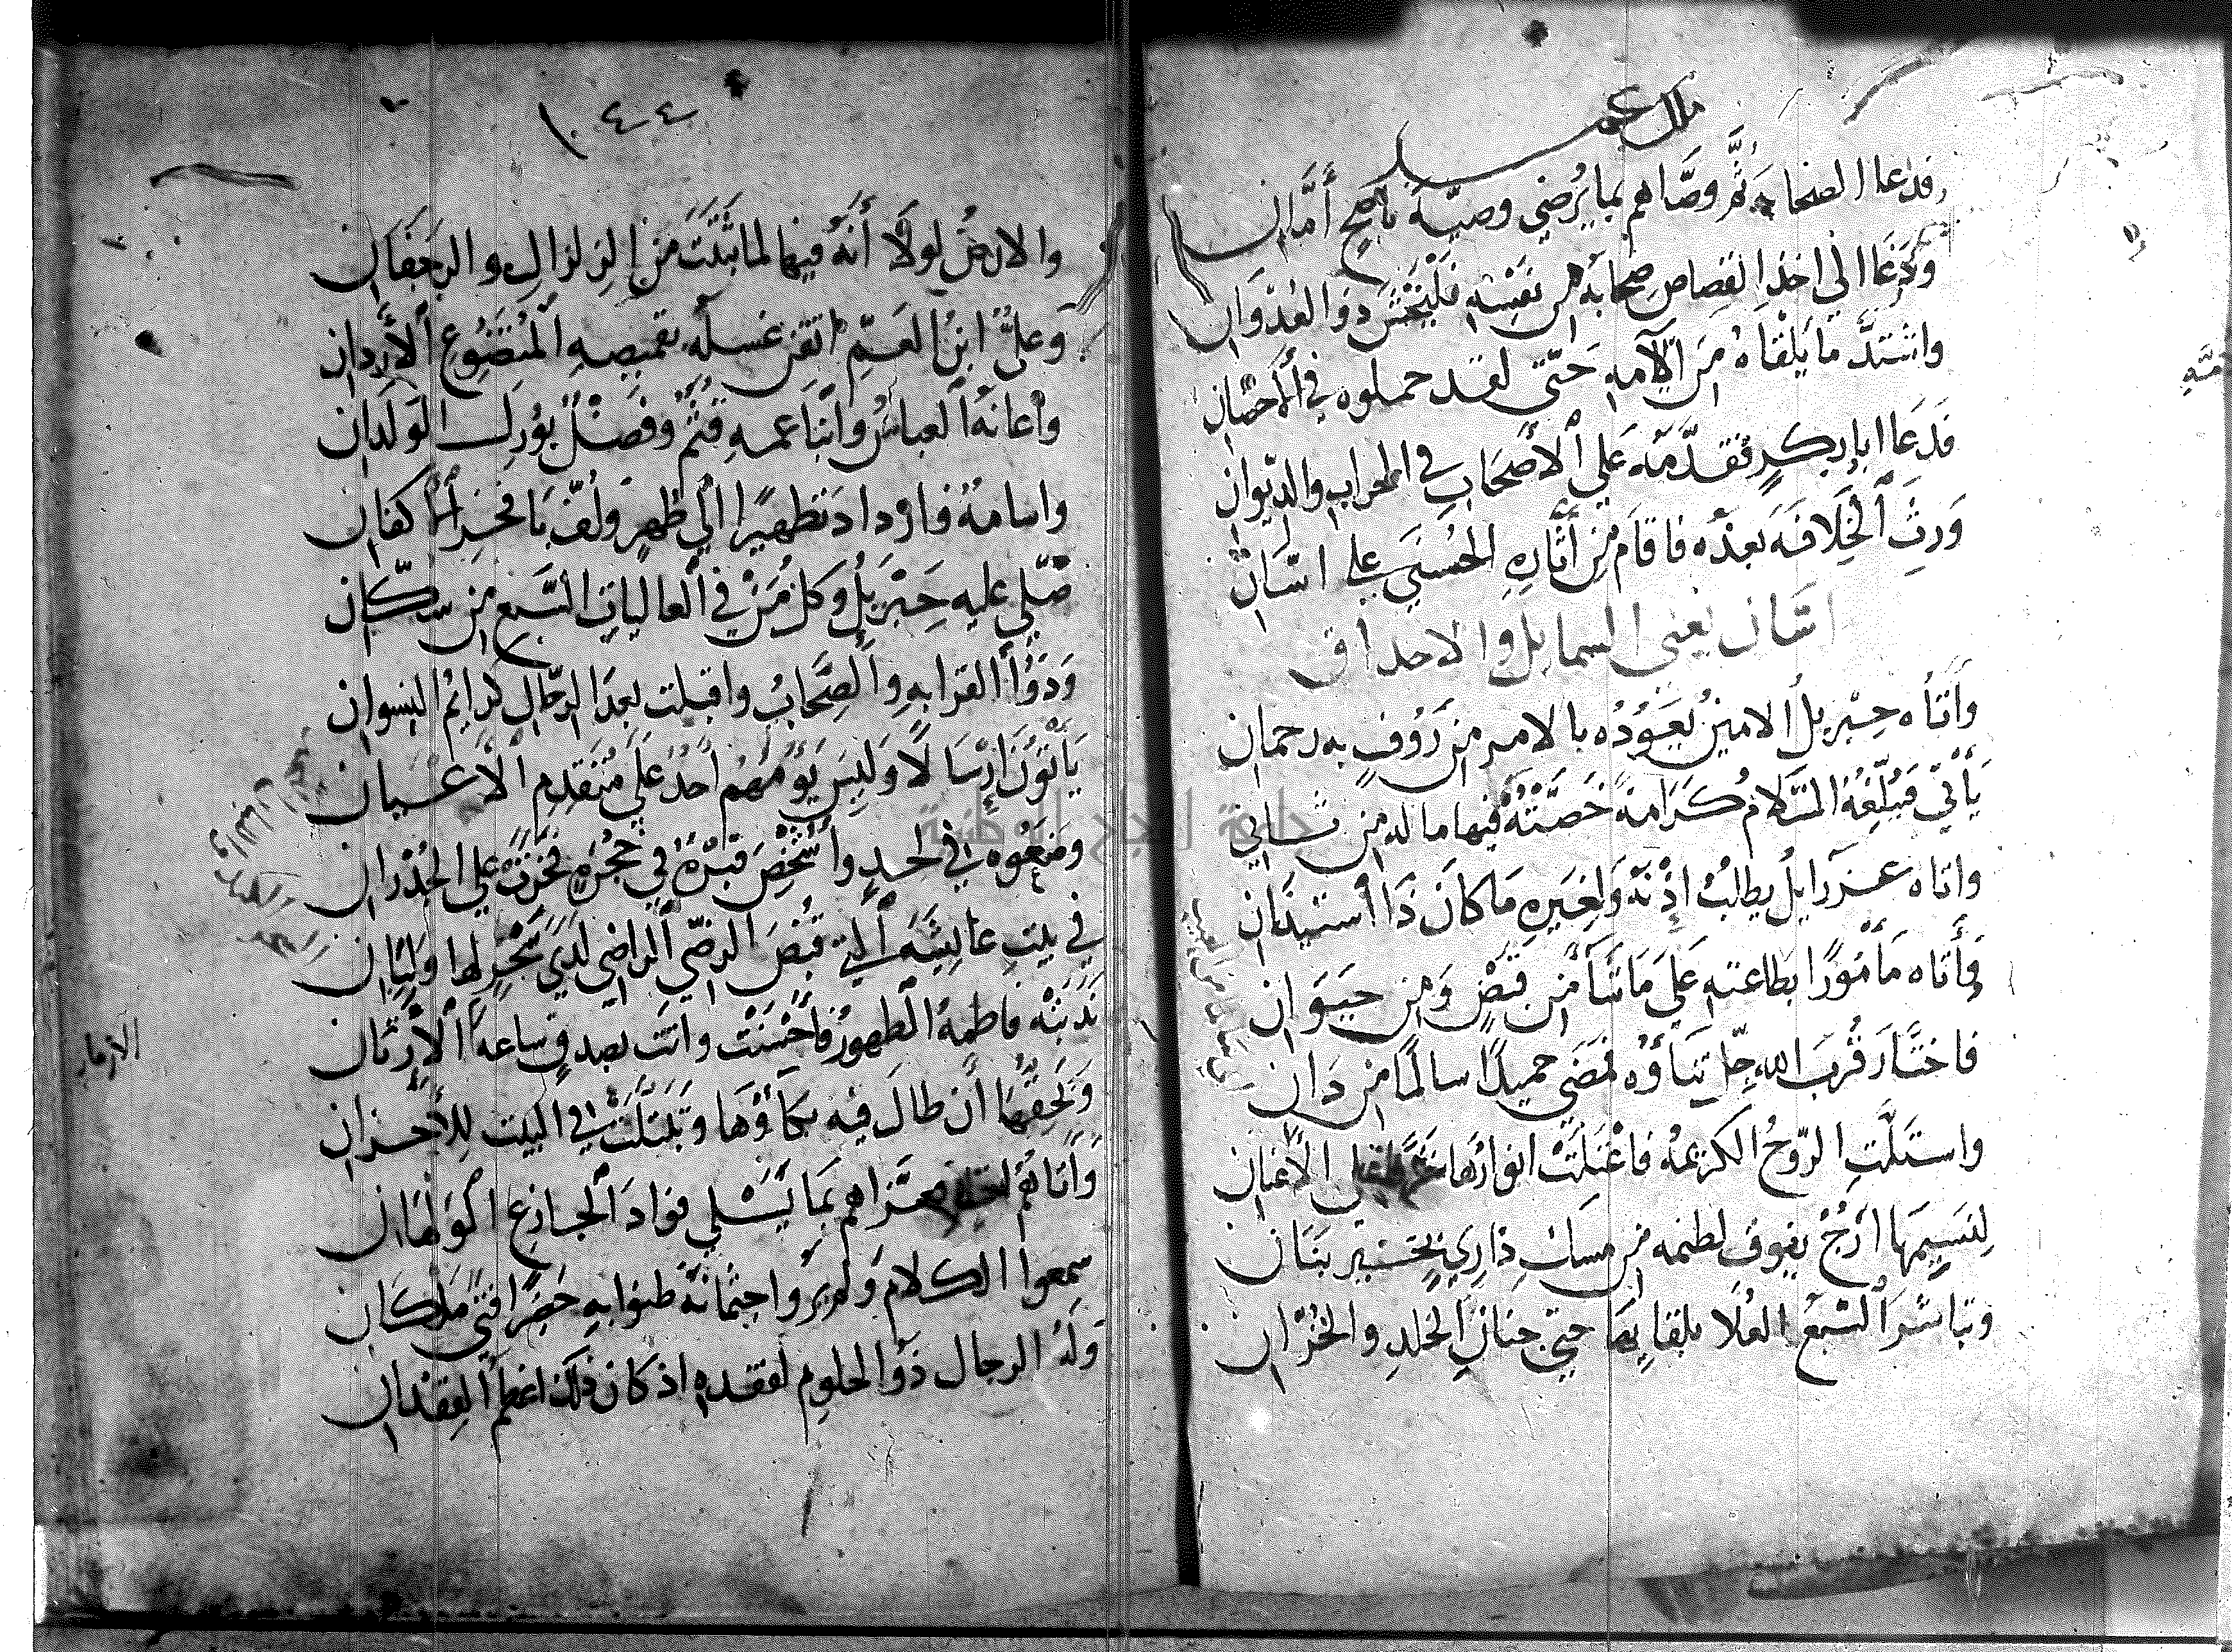 فدعا الصحابة ثم وصاهم بما يرضي وصية ناصح أمان
ودعا الي اخذ القصاص صحابه من نفسه فليخش ذوا العدوان
واشتد ما يلقاه من آلآمه حتى لقد حملوه في الأحضان
فدعا ابا بكر فقدمه علي الأصحاب في المحراب والديوان
ورث الخلافة بعده فاقام من أثاره الحسني علي اسان
اسان يعني السمايل والاخلاق
وأتاه جبريل الامين يعوده بالامر من رؤف به رحمان
يأتي فيبلغه السلام كرامة خصته فيها ما له من ثاني
واتاه عزرايل يطلب اذنه ولغيره ما كان ذا أستيذان
فأتاه مأمورا بطاعته علي ما شا من قبض ومن حيوان
فاختار قرب الله جل ثناؤه فمضي حميدا سالما من ران
واستلت الروح الكريمة فاعتلت انوارها علي الاعنان
لنسيمها أرج يفوق لطيمه من مسك داري بخير بنان
وتباشر السبع العلا بلقايها حتي جنان الخلد والخزان
١٠٤٤
والارض لولا أنه فيها لما ثبتت من الزلزال والرجفان
وعلي ابن العم اتقن غسله بقميصه المتضوع الأردان
وأعانه العباس وابنا عمه قثم وفضل بورك الولدان
واسامة فازداد تطهيرا الي طهر ولف بافخر الأكفان
صلي عليه جبريل وكل من في العاليات السبع من سكان
وذوا القرابه والصحاب واقبلت بعد الرجال كرايم النسوان
يأتون ارسالا وليس يؤمهم أحد علي متقدم الاعيان
وضعوه في لحد وأشخص قبره في حجرة فخرت علي الجدران
في بيت عايشه التي قبض الرضي الراضي لدي نحر لها ولبان
ندبته فاطمة الطهور فأحسنت واتت بصدق ساعة الأرنان
الازمان
ويحقها أن طال فيه بكاؤها وتبتلت في البيت للأحزان
وأتاهم الخضر فعزاهم بما يسلي فواد الجازع الولهان
سمعوا الكلام ولم يروا جثمانه ظنوا به خضرا فتي ملكان
وله الرجال ذوا الحلوم لفقده اذ كان ذلك اعظم الفقدان